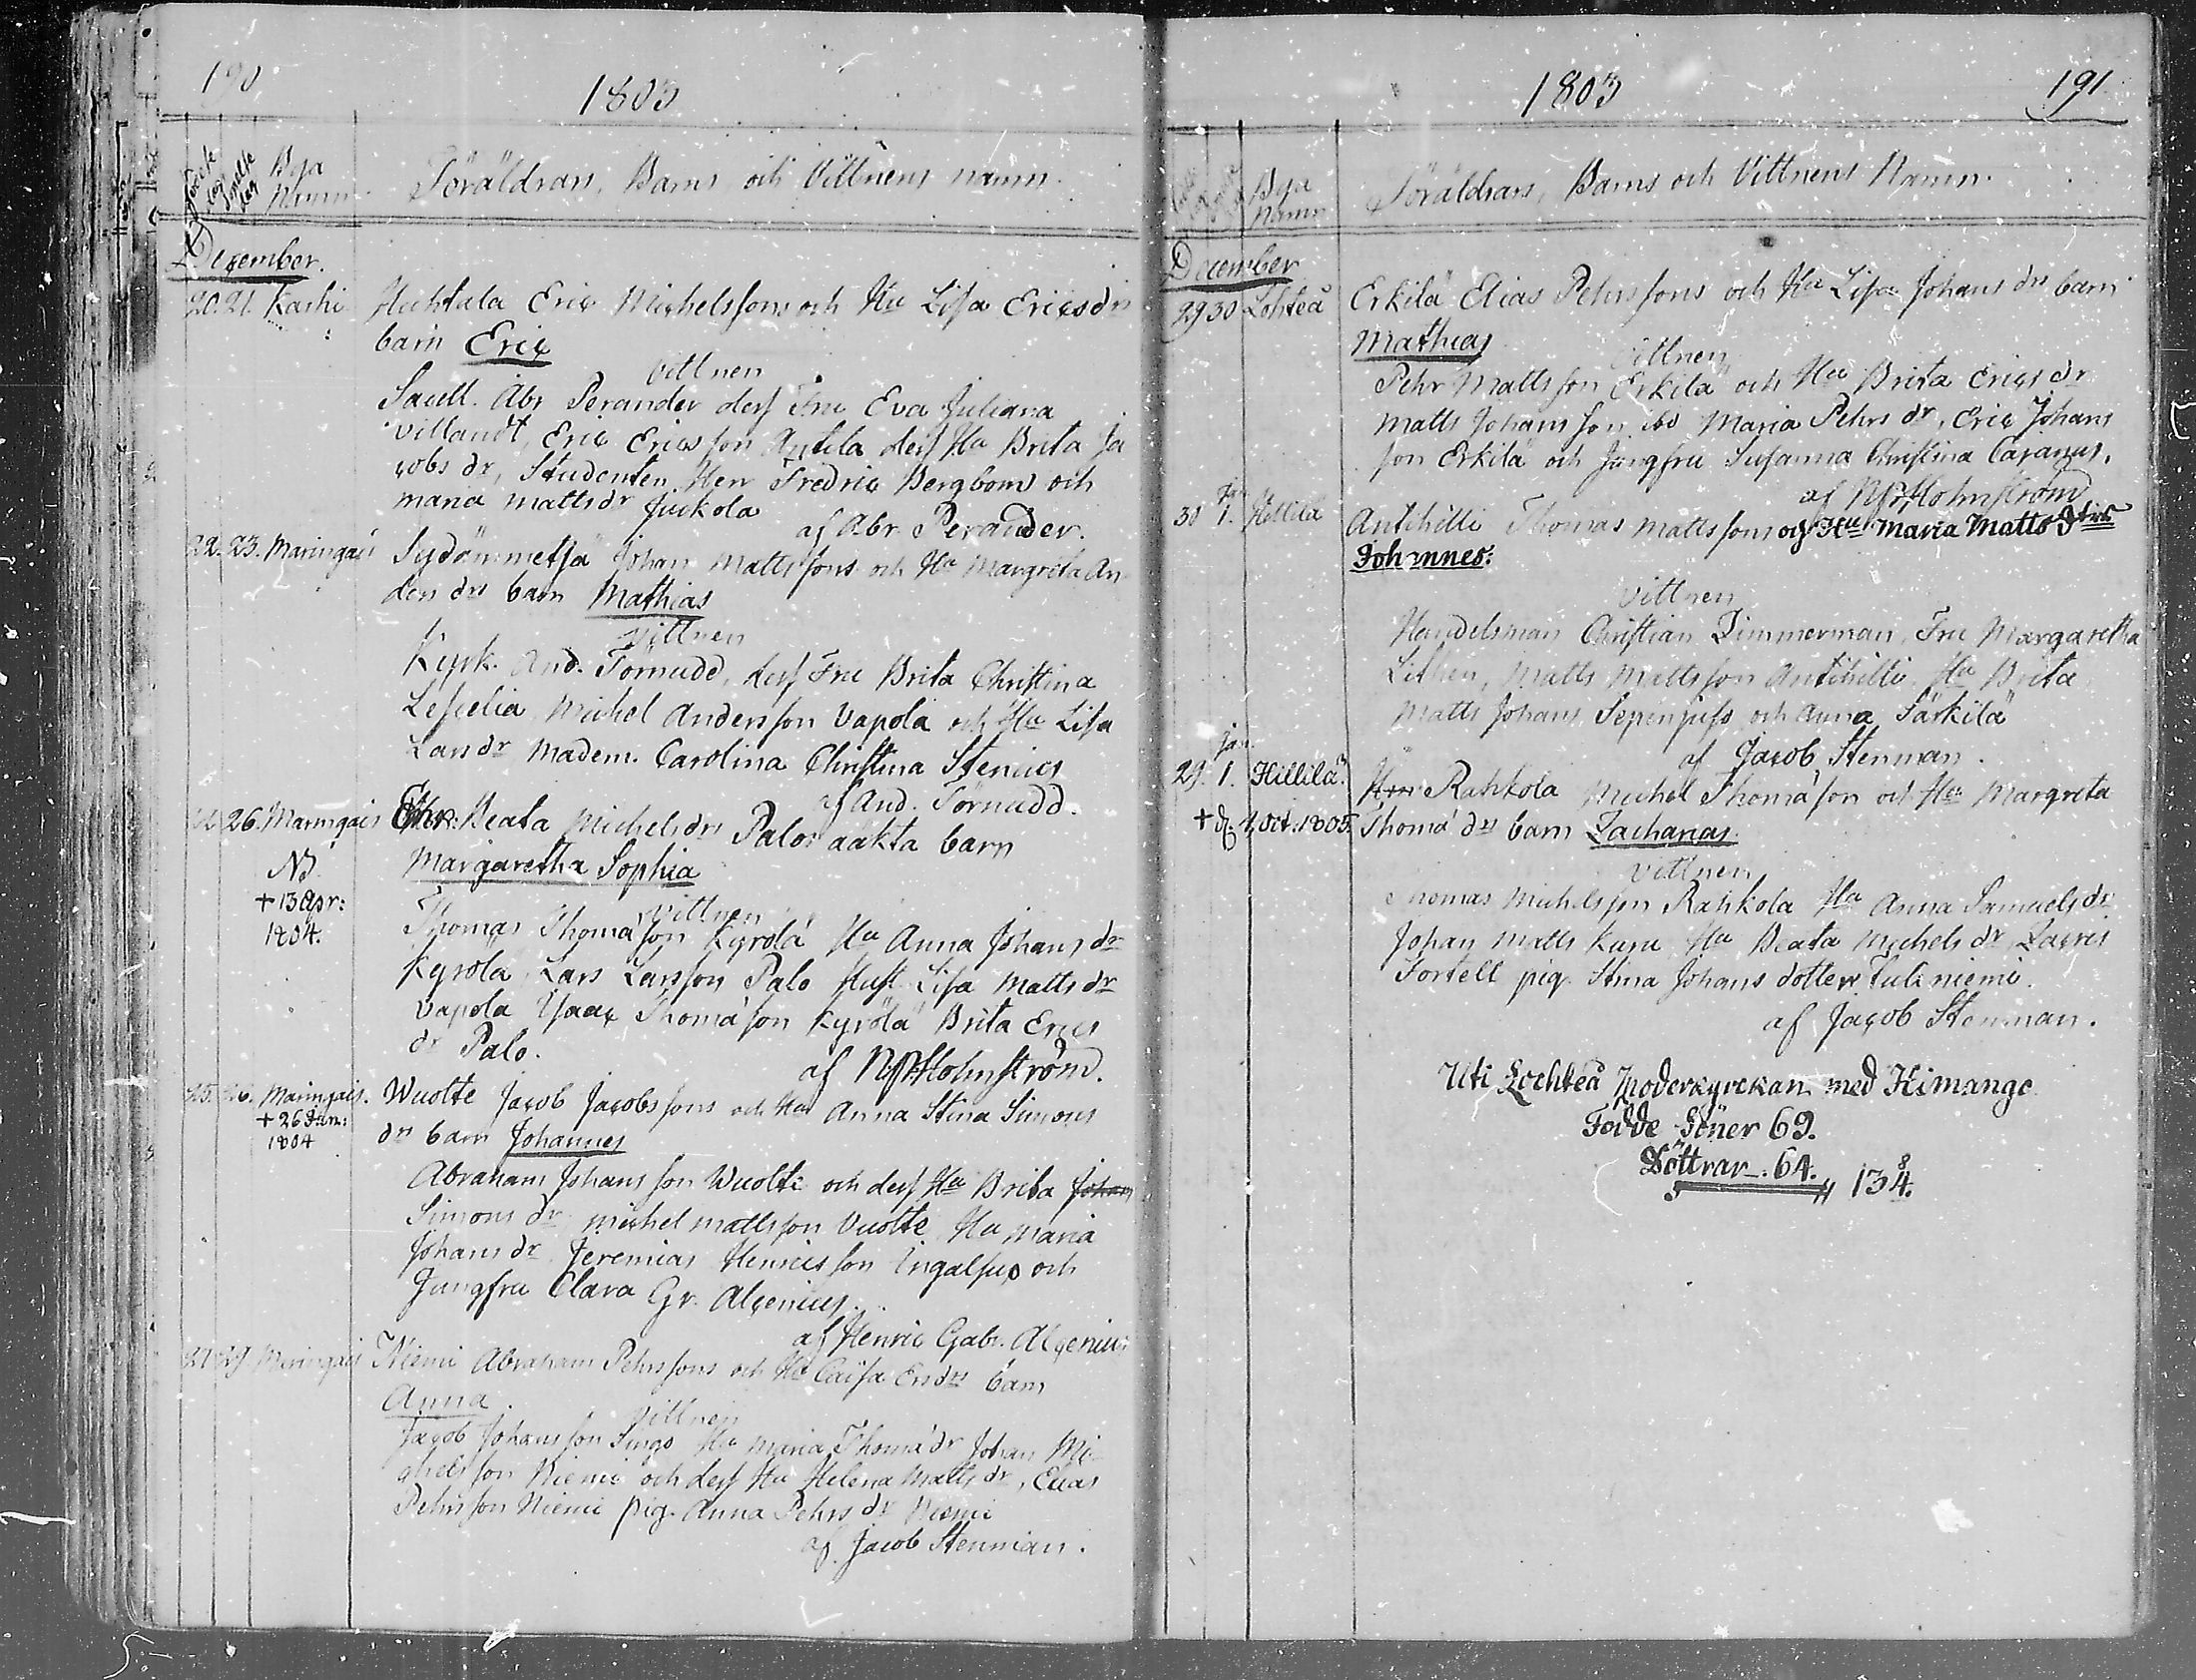 190
1803
Födelse dag
Döpelse dag
Bya Namn
Föräldrars, Barns och Vittnens namn.
December.
20. 21. Karhi
Huhtala Eric Michelssons och Hu Lisa Ericsdrs
barn Eric
Vittnen
Sacell. Abr Perander dess Fru Eva Juliana
Villandt, Eric Ericsson Antila dess Hu Brita Ja
cobs dr, Studenten Herr Fredric Bergbom och
maria matts dr Juckola
af Abr. Perander.
22. 23. Maringais
Sydänmetsä Johan Mattssons och Hu Margreta An
ders drs barn Mathias
Vittnen
Kyrk. And. Törnudd, dess Fru Brita Christina
Lescelia, Michel Andersson Vapola och Hu Lisa
Lars dr Madem. Carolina Christina Stenius
af And. Törnudd.
26. Maringais
Beata Michelsdrs Palos aakta barn
Margaretha Sophia
NB
+ 13 Apr:
1804.
Vittnen
Thomas Thomasson Kyrölä Hu Anna Johans dr
Kyrölä, Lars Larsson Palo Hust. Lisa Matts dr
Vapola Isaac Thomasson Kyrölä Brita Erics
dr Palo.
af Holmström.
25. 26. Maringais.
+ 26 Jan:
1804
Wuolte Jacob Jacobssons och Hu Anna Stina Simons
drs barn Johannes
Abraham Johansson Wuolte och dess Hu Brita Johans
Simons dr michel mattsson Vuolte Hu Maria
Johans dr Jeremias Henricsson Ingalsuo och
Jungfru Clara Gr. Alcenius.
af Henric Gabr. Alcenius
27 29 Maringais
Niemi Abraham Pehrssons och Hu Caisa Ersdrs barn
Anna
Vittnen
Jacob Johansson Singo Hu Maria Thomas dr Johan Mi
chelsson Niemi och dess Hu Helena Matts dr, Elias
Pehrsson Niemi pig. Anna Pehrs dr Niemi
af Jacob Stenman.
1803
191
Bya Namn
Föräldrars, Barns och Vittnens Namn.
December
29 30 Lohteå
Erkilä Elias Pehrssons och Hu Lisa Johans drs barn
Mathias
Vittnen
Pehr Mattsson Erkilä och Hu Brita Erics dr
Matts Johansson ibd Maria Pehrs dr, Eric Johans
son Erkilä och Jungfru Susanna Christina Cajanus.
af Holmström
30 Jan 1. Hillilä
Antihilli Thomas Mattssons och Hu Maria Matts Dtrs
Johannes:
Vittnen
Handelsman Christian Zimmerman, Fru Margaretha
Lithen, Matts Mattsson Antihilli Hu Brita
Matts Johans Sepenjuso och Anna Särkilä
af Jacob Stenman.
jan.
29. 1. Hillilä.
+ d. 1 Oct: 1805.
Rahkola Michel Thomasson och Hu Margreta
Thomas drs barn Zacharias.
Vittnen
Thomas Michelsson Rahkola Hu Anna Samuels dr
Johan Matts Karu, Hu Beata Michels dr Zacris
Fortell pig. Stina Johans dotter Tuliniemi.
af Jacob Stenman.
Uti Lochteå Moderkyrckan med Himango
Födde Söner 69.
Döttrar. 64. 134.